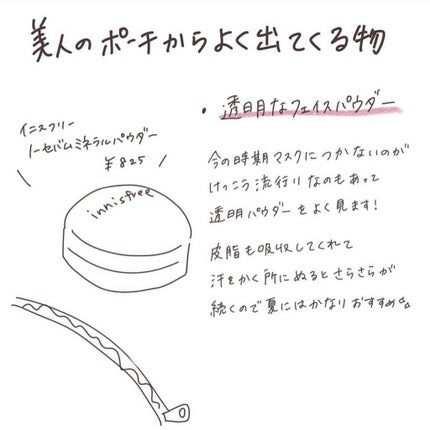 美人のポーチからよく出てくる物
• 透明なフェイスパウダー
イニスフリー
ノーセバムミネラルパウダー
¥825
innisfree
今の時期マスクにつかないのが
けっこう流行りなのもあって
透明パウダーをよく見ます!
皮脂も吸収してくれて
汗をかく所にぬるとさらさらが
続くので夏にはかなりおすすめ